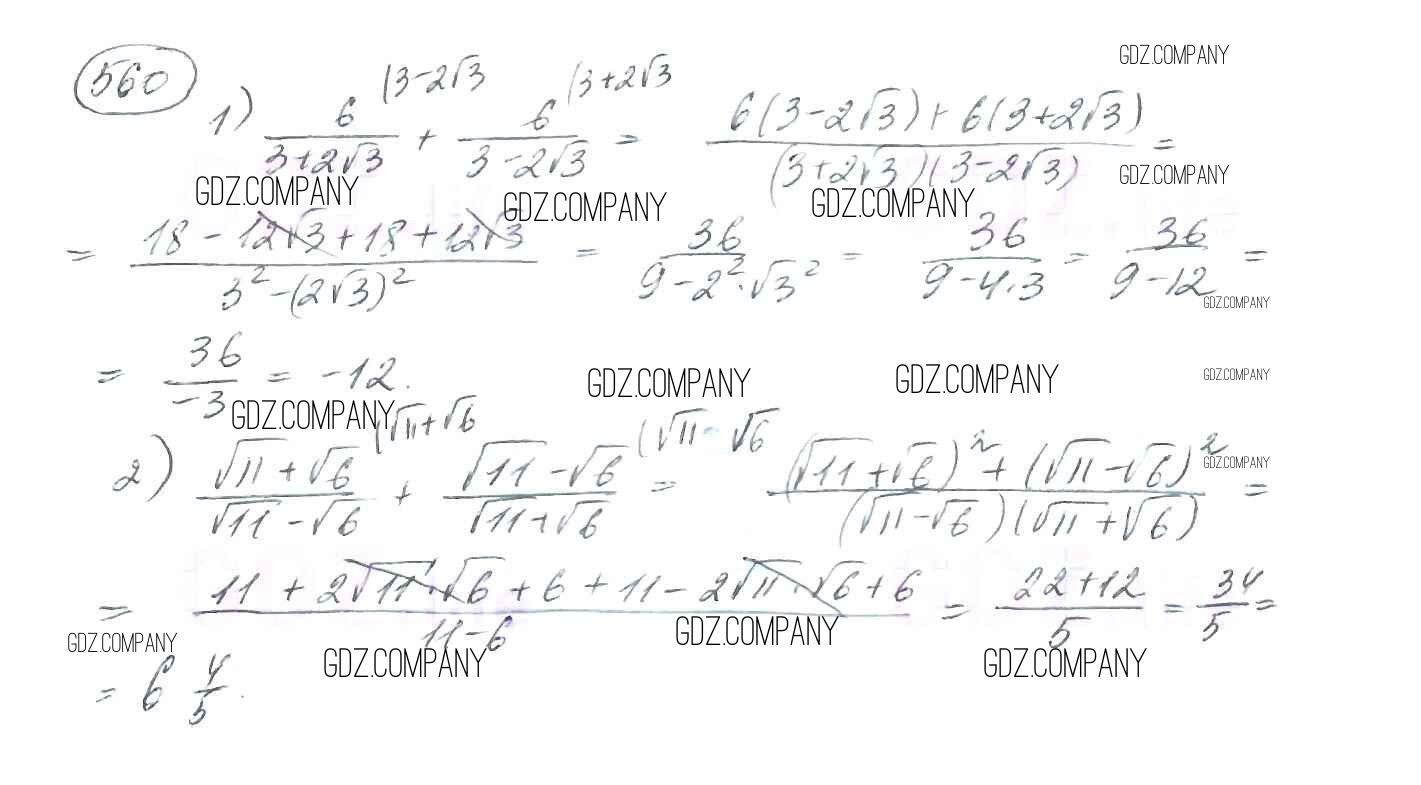 560
GDZ.COMPANY
1) 6/(3+2√3) (3-2√3 + 6/(3-2√3) (3+2√3 = (6(3-2√3)+6(3+2√3))/((3+2√3)(3-2√3)) =
GDZ.COMPANY GDZ.COMPANY GDZ.COMPANY GDZ.COMPANY
= (18-12√3+18+12√3)/(3²-(2√3)²) = 36/(9-2²·√3²) = 36/(9-4·3) = 36/(9-12) =
GDZ.COMPANY
= 36/(-3) = -12.
GDZ.COMPANY GDZ.COMPANY GDZ.COMPANY GDZ.COMPANY
2) (√11+√6)/(√11-√6) (√11+√6 + (√11-√6)/(√11+√6) (√11-√6 = ((√11+√6)²+(√11-√6)²)/((√11-√6)(√11+√6)) =
GDZ.COMPANY
= (11+2√11·√6+6+11-2√11·√6+6)/(11-6) = (22+12)/5 = 34/5 =
GDZ.COMPANY GDZ.COMPANY GDZ.COMPANY GDZ.COMPANY
= 6 4/5.